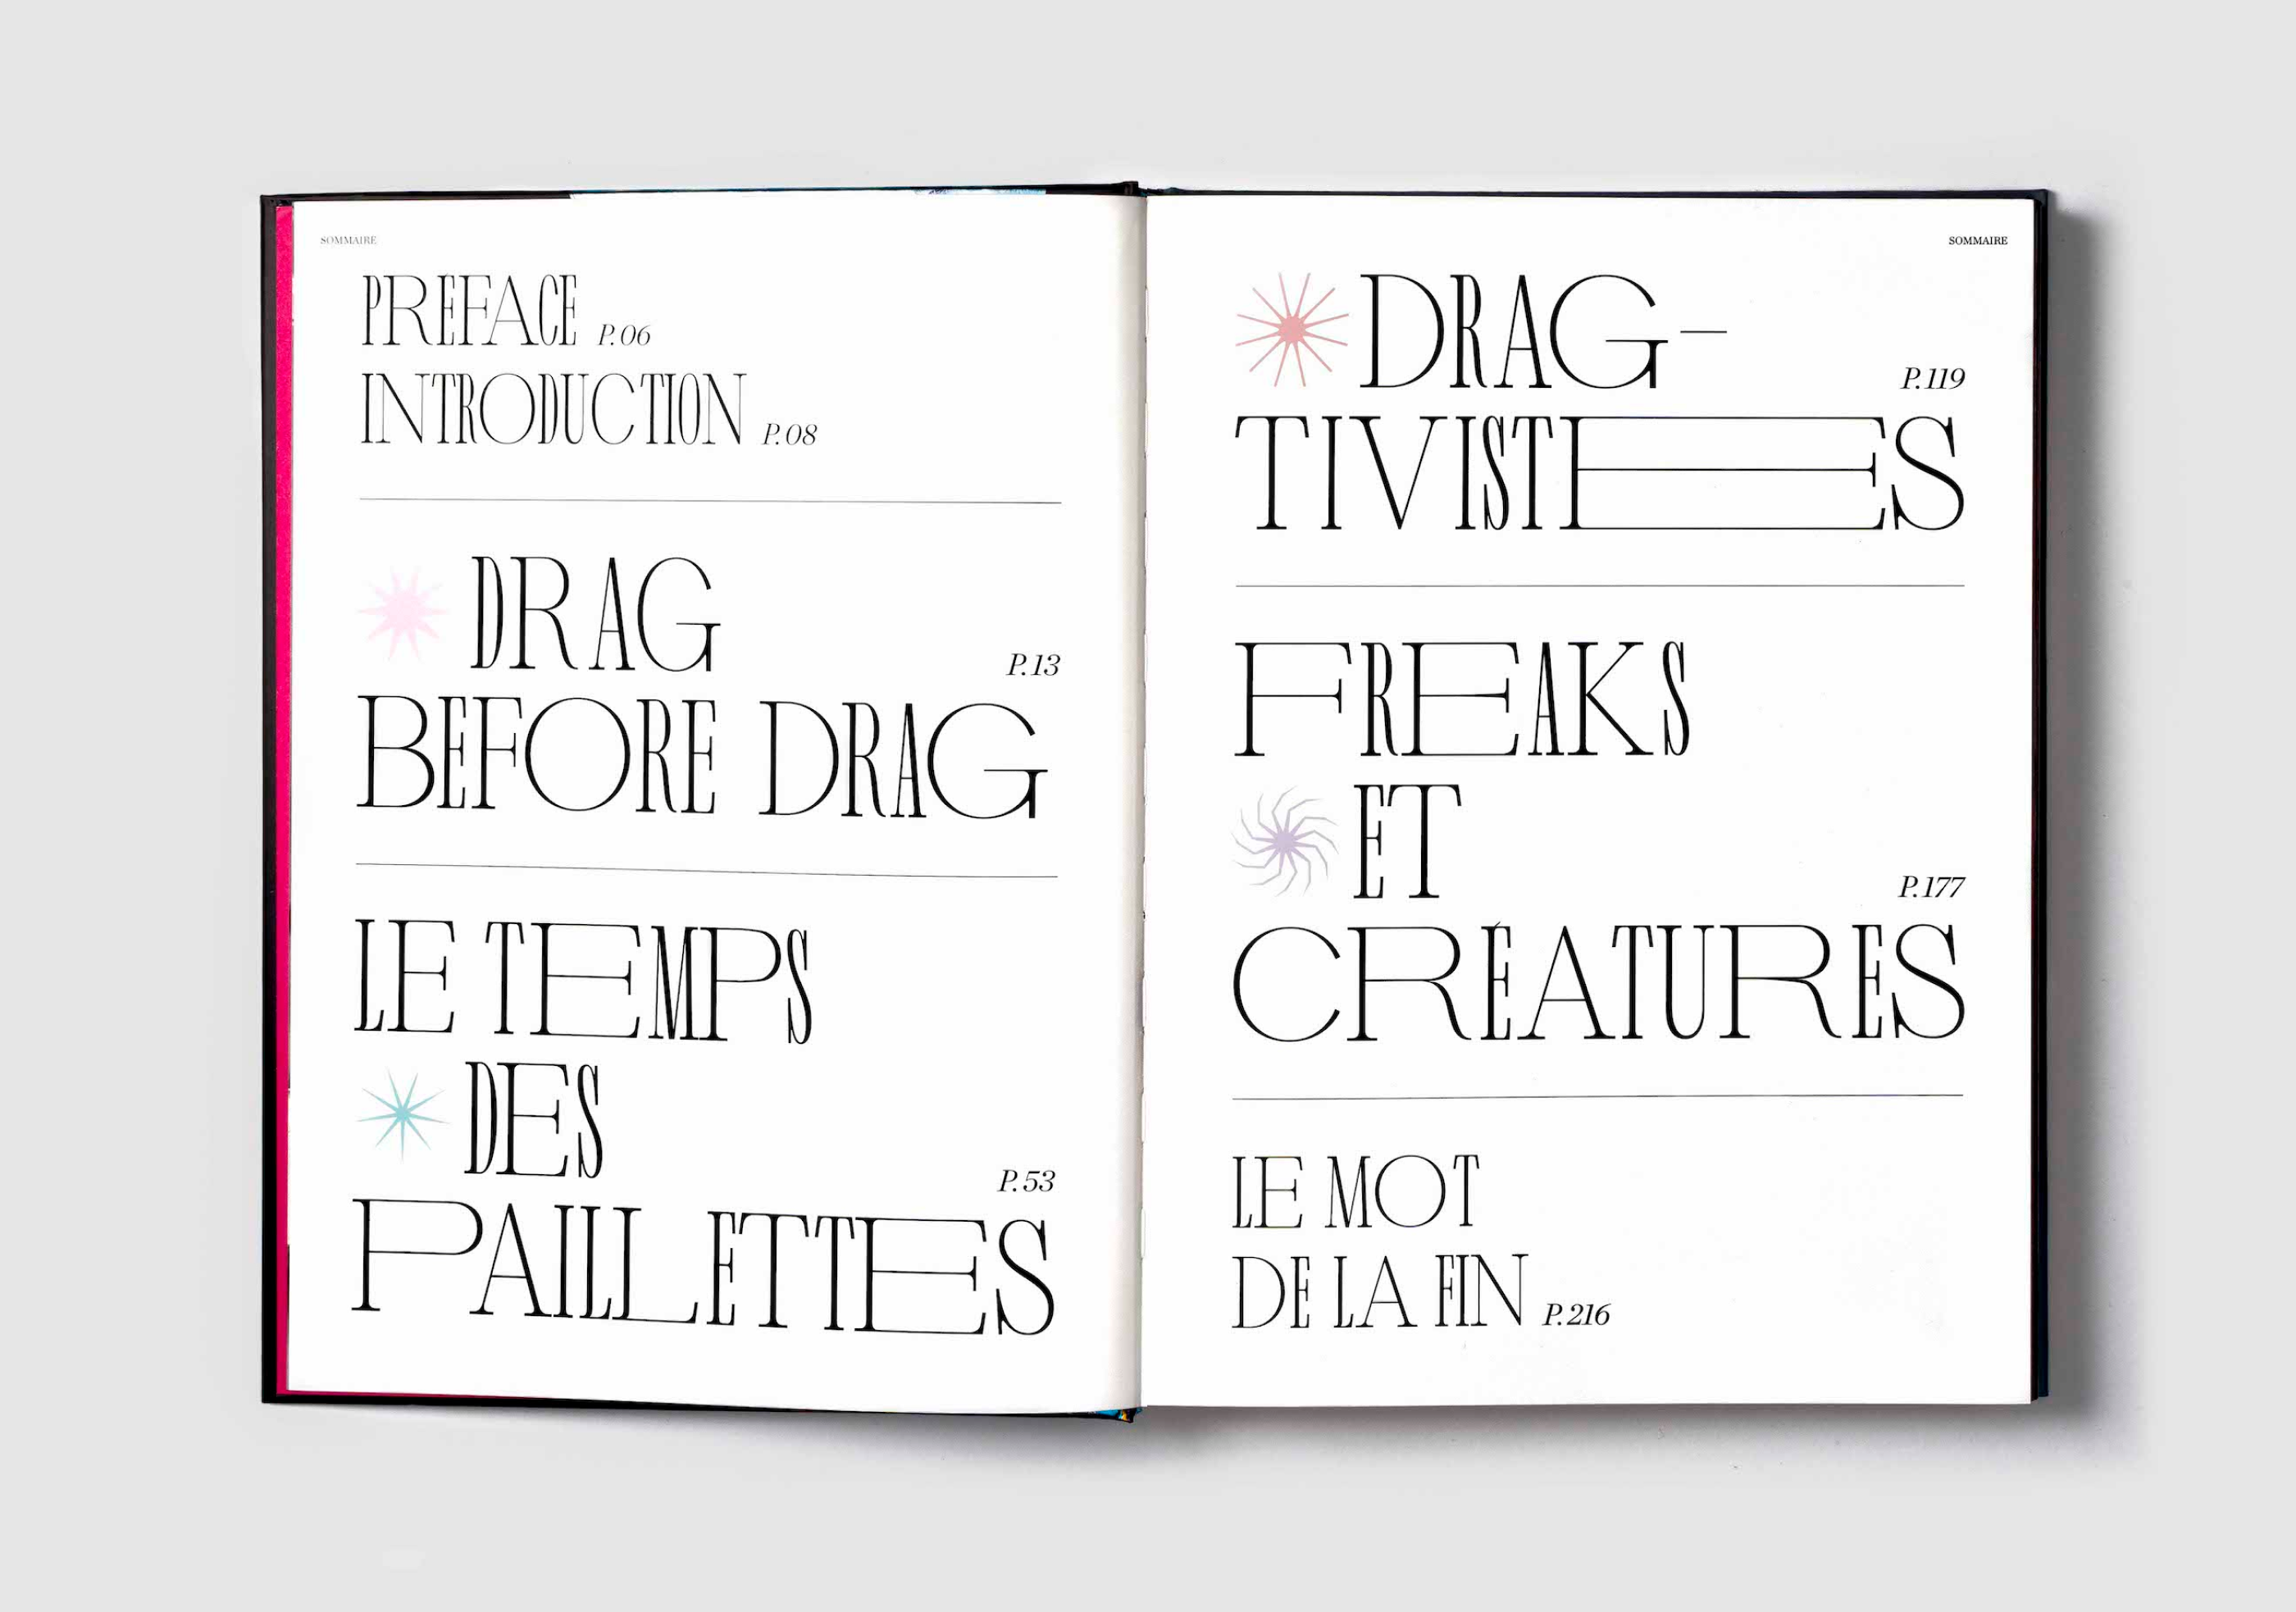 SOMMAIRE
PRÉFACE P.06
INTRODUCTION P.08
DRAG
P.13
BEFORE DRAG
LE TEMPS
DES
P.53
PAILLETTES
SOMMAIRE
DRAG-
P.119
TIVISTES
FREAKS
ET
P.177
CRÉATURES
LE MOT
DE LA FIN P.216